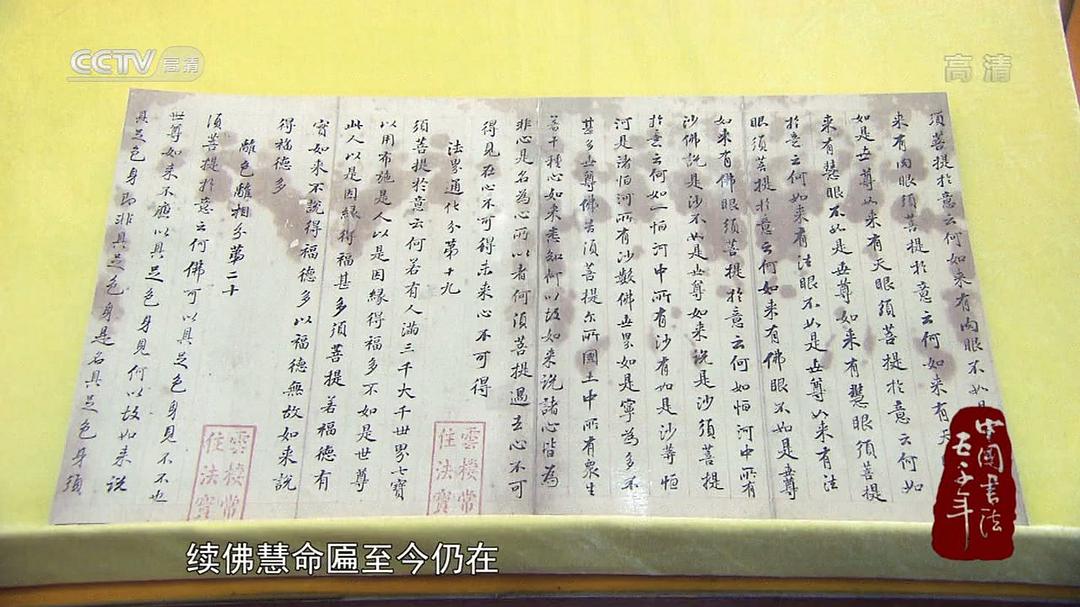 CCTV 高清
高清
須菩提於意云何如来有肉眼不如是
来有肉眼須菩提於意云何如来有天
如是世尊如来有天眼須菩提於意云何如
来有慧眼不如是世尊如来有慧眼須菩提
於意云何如来有法眼不如是世尊如来有法
眼須菩提於意云何如来有佛眼不如是世尊
如来有佛眼須菩提於意云何如恒河中所有
沙佛說是沙不如是世尊如来說是沙須菩提
於意云何如一恒河中所有沙有如是沙等恒
河是諸恒河所有沙數佛世界如是寧為多不
甚多世尊佛告須菩提尔所國土中所有衆生
若干種心如来悉知何以故如来說諸心皆為
非心是名為心所以者何須菩提過去心不可
得見在心不可得未来心不可得
法界通化分第十九
須菩提於意云何若有人滿三千大千世界七寶
以用布施是人以是因縁得福多不如是世尊
此人以是因縁得福甚多須菩提若福德有
實如来不說得福德多以福德無故如来說
得福德多
離色離相分第二十
須菩提於意云何佛可以具足色身見不不也
世尊如来不應以具足色身見何以故如来說
具足色身即非具足色身是名具足色身須
雲棲常
住法寶
雲棲常
住法寶
中國书法
五千年
续佛慧命匾至今仍在